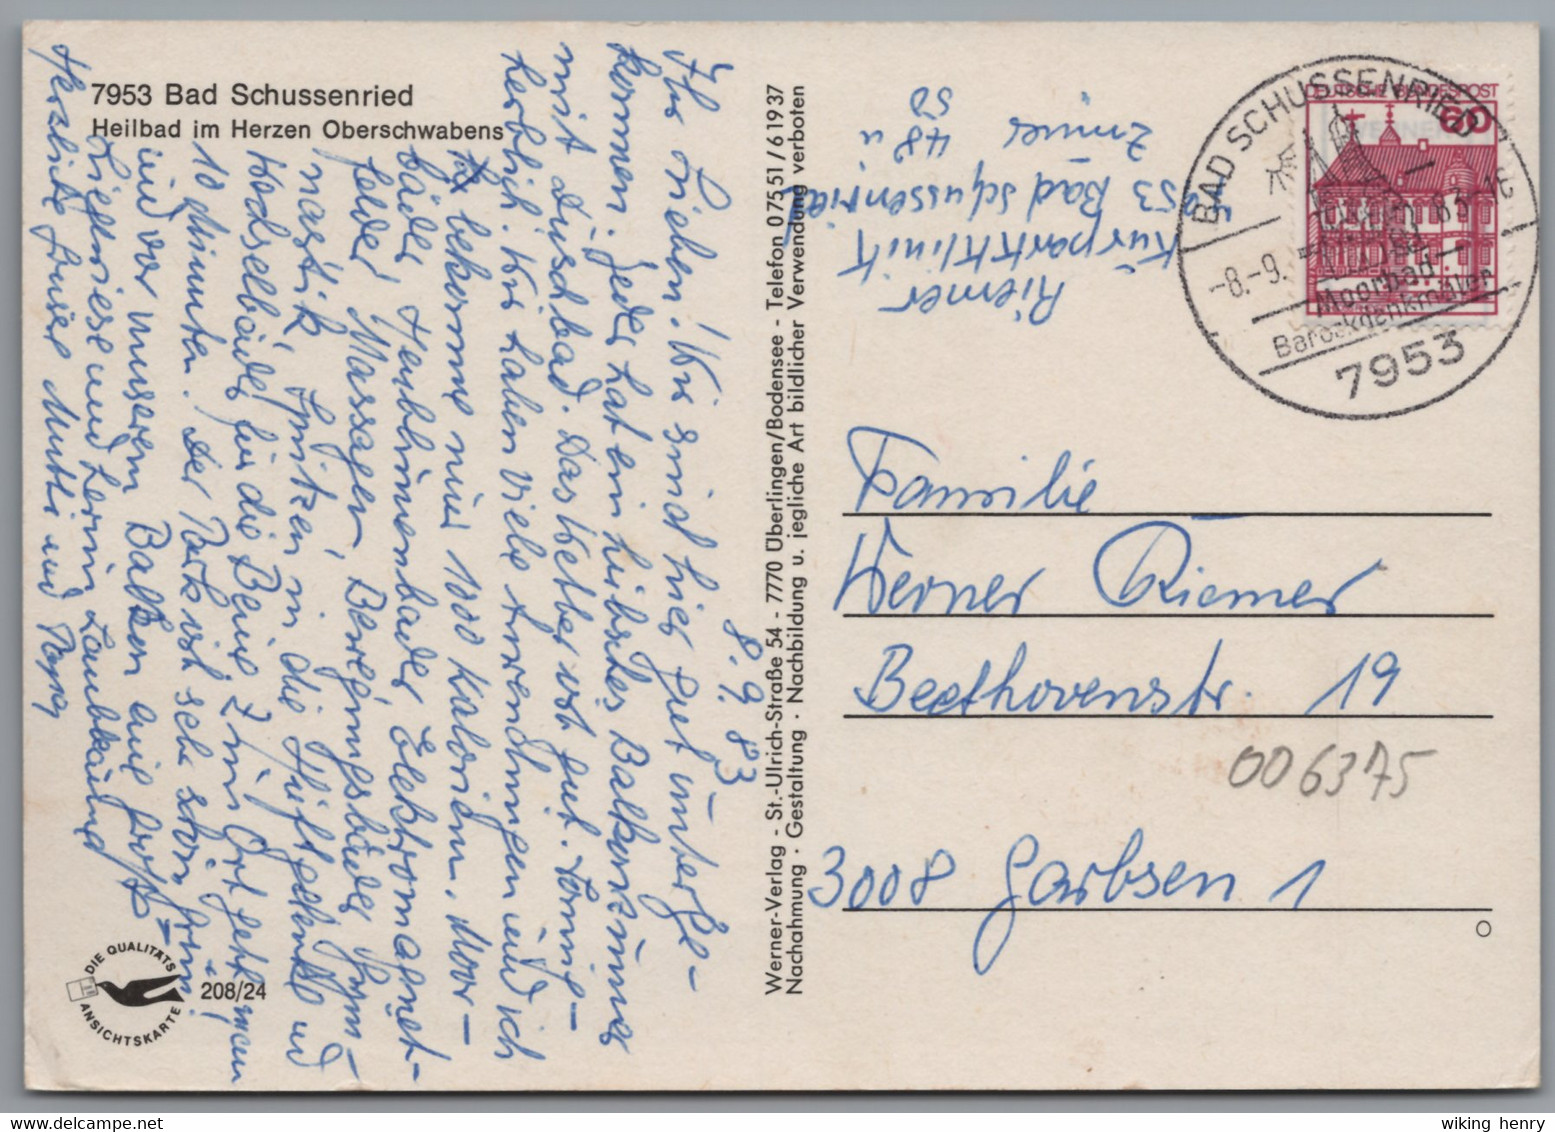 7953 Bad Schussenried
Heilbad im Herzen Oberschwabens
8.9.83
Ihr Lieben! Wir sind hier gut unterge-
kommen. Jeder hat ein hübsches Balkonzimmer
mit Duschbad. Das Wetter ist gut. Sonnig-
herblich. Wir haben viele Anwendungen und ich
bekomme nur 1000 Kalorien. Moor-
bäder, Heublumenbäder, Elektromagnet-
felder, Massagen, Bewegungsbäder, Gym-
nastik, Spritzen in die Hüftgelenke und
für die Beine. Zum Ort gehn wir
10 Minuten. Der Park ist sehr schön grün
und vor unserem Balkon eine große
Liegewiese und herum Laubbäume
Herzliche Grüße Mutti und Papa
DIE QUALITÄTS
ANSICHTSKARTE
208/24
Werner-Verlag - St.-Ulrich-Straße 54 - 7770 Überlingen/Bodensee - Telefon 07551/61937
Nachahmung · Gestaltung · Nachbildung u. jegliche Art bildlicher Verwendung verboten
Riemer
Kurparkklinik
7953 Bad Schussenried
Zimmer 48 u
50
DEUTSCHE BUNDESPOST
60
BAD SCHUSSENRIED
-8.-9.83-12
Moorbad
Barockdenkmäler
7953
Familie
Werner Riemer
Beethovenstr. 19
006375
3008 Garbsen 1
wiking henry